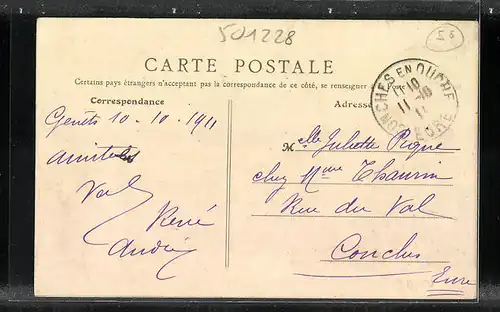 501228
56
CARTE POSTALE
Certains pays étrangers n'acceptant pas la correspondance de ce côté, se renseigner
Correspondance
Adresse
CONCHES EN OUCHE
11-10
11
EURE
Genêts 10-10-1911
amitiés
Val
René
André
Melle Juliette Roque
chez Mme Thaurin
Rue du Val
Conches
Eure